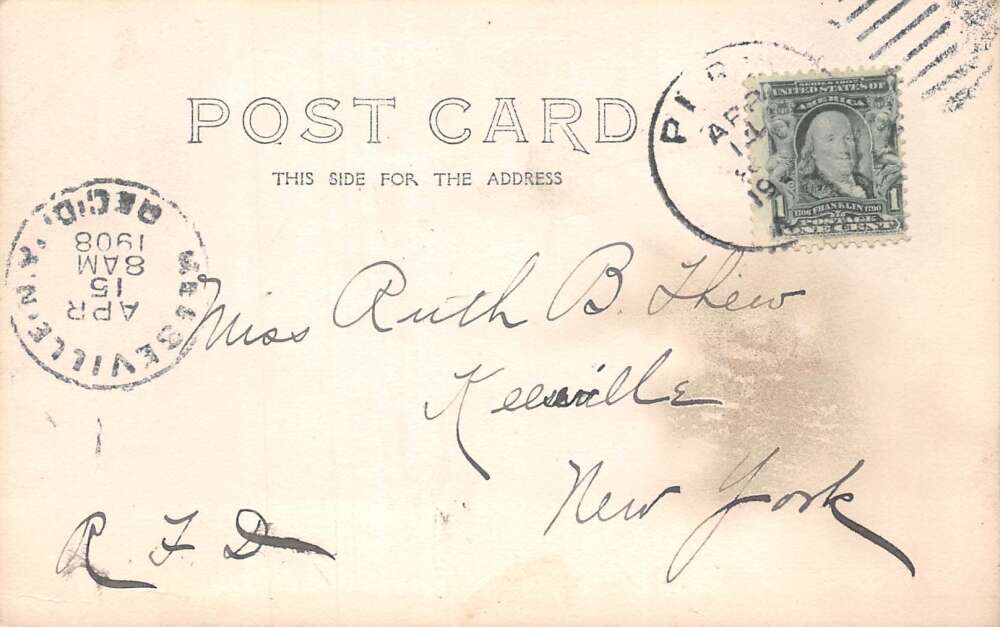 POST CARD
THIS SIDE FOR THE ADDRESS
SERIES 1902
UNITED STATES OF
AMERICA
1706 FRANKLIN 1790
POSTAGE
1 ONE CENT 1
APR
19
KEESEVILLE N.Y.
APR
15
8 AM
1908
REC'D.
Miss Ruth B. Thew
Keeseville
New York
R. F. D